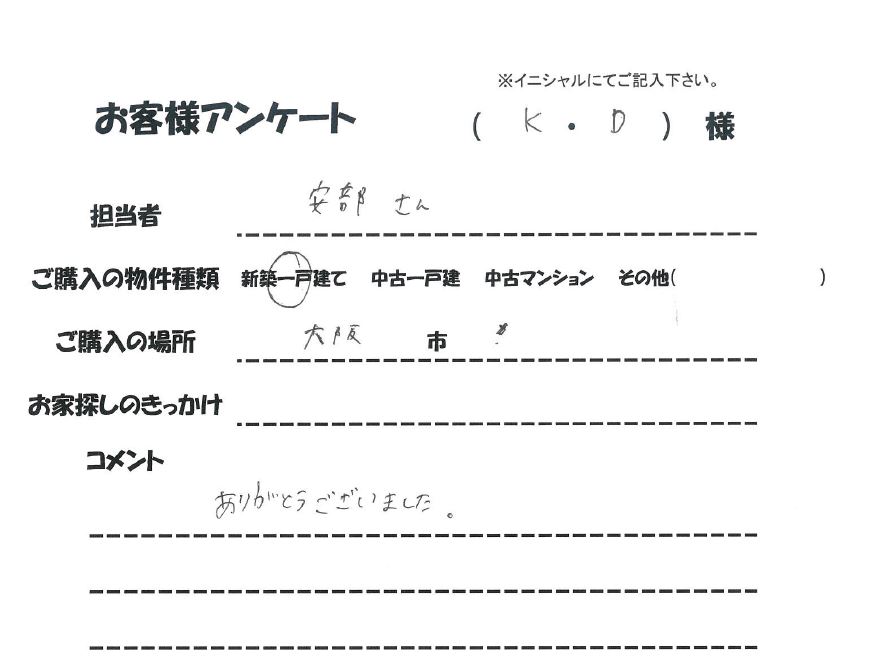 ※イニシャルにてご記入下さい。
お客様アンケート ( K ・ D ) 様
担当者 安部 さん
ご購入の物件種類 新築一戸建て 中古一戸建 中古マンション その他( )
ご購入の場所 大阪 市
お家探しのきっかけ
コメント
ありがとうございました。